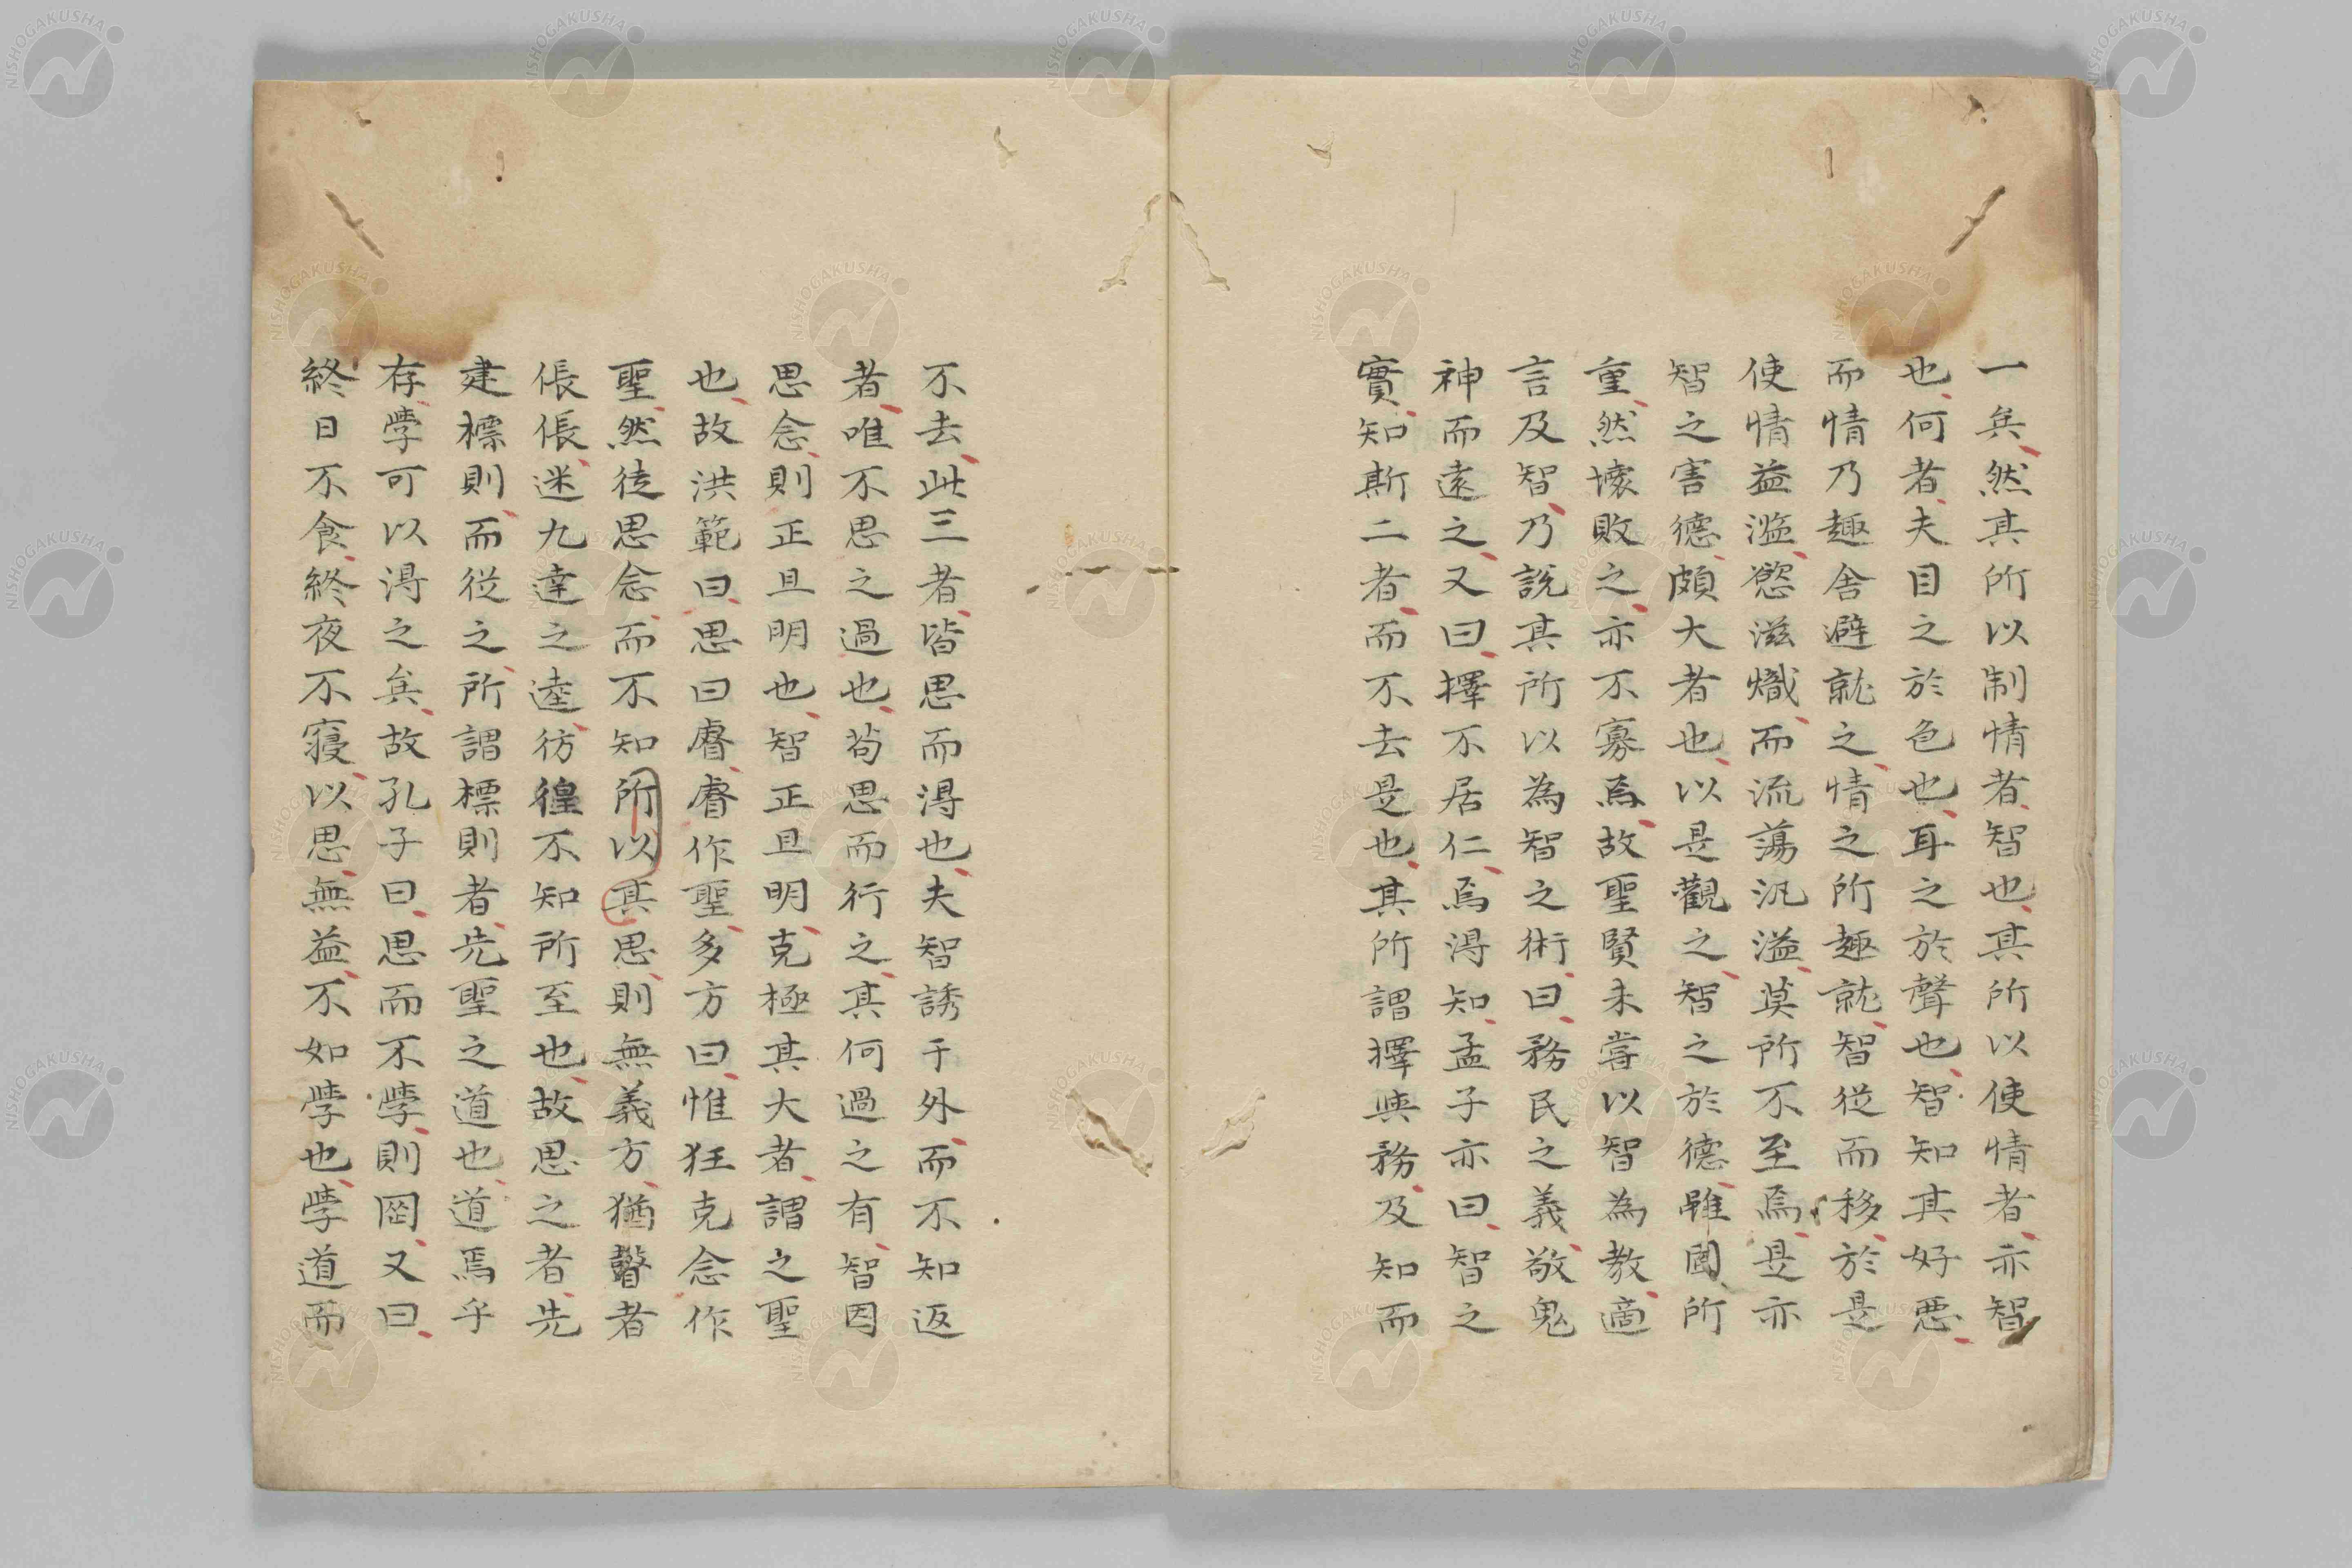 一矣然其所以制情者智也其所以使情者亦智
也何者夫目之於色也耳之於聲也智知其好惡
而情乃趣舍避就之情之所趣就智從而移於是
使情益滥慾滋熾而流蕩汎溢莫所不至焉是亦
智之害德頗大者也以是觀之智之於德雖固所
重然壞敗之亦不寡焉故聖賢未嘗以智為教適
言及智乃說其所以為智之術曰務民之義敬鬼
神而遠之又曰擇不居仁焉得知孟子亦曰智之
實知斯二者而不去是也其所謂擇與務及知而
不去此三者皆思而得也夫智誘于外而不知返
者唯不思之過也苟思而行之其何過之有智因
思念則正且明也智正且明克極其大者謂之聖
也故洪範曰思曰睿睿作聖多方曰惟狂克念作
聖然徒思念而不知所以其思則無義方猶瞽者
倀倀迷九達之逵彷徨不知所至也故思之者先
建標則而從之所謂標則者先聖之道也道焉乎
存學可以得之矣故孔子曰思而不學則罔又曰
終日不食終夜不寢以思無益不如學也學道而
NISHOGAKUSHA